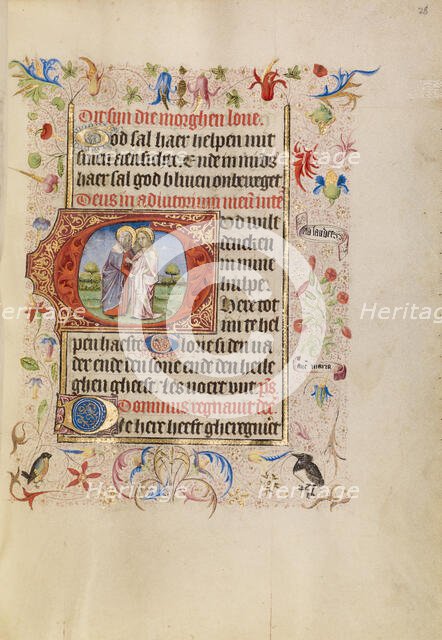 28
Dit syn die morghen love.
God sal haer helpen mit
haer sal god bliven onbeweget
Deus in adiutorium meum inte
God wilt
dencken
in mine
hulpe
Here tot
mi te hel
pen haeste Glone si den va
der ende den sone ende den heile
ghen gheest. Als
Dominus regnavit
ie here heeft gheregniet
Heritage
Heritage
Heritage
Heritage
Heritage